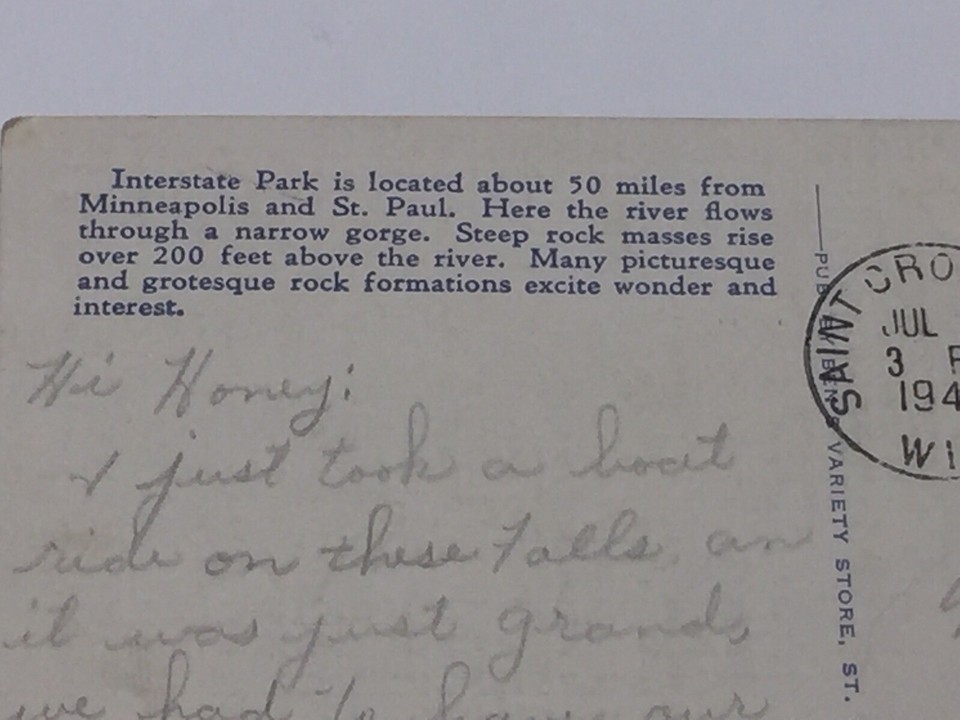 Interstate Park is located about 50 miles from
Minneapolis and St. Paul. Here the river flows
through a narrow gorge. Steep rock masses rise
over 200 feet above the river. Many picturesque
and grotesque rock formations excite wonder and
interest.
Hi Honey:
I just took a boat
ride on these Falls, an
it was just grand,
we had to have our
SAINT CRO
JUL
3 P
194
WI
VARIETY STORE, ST.